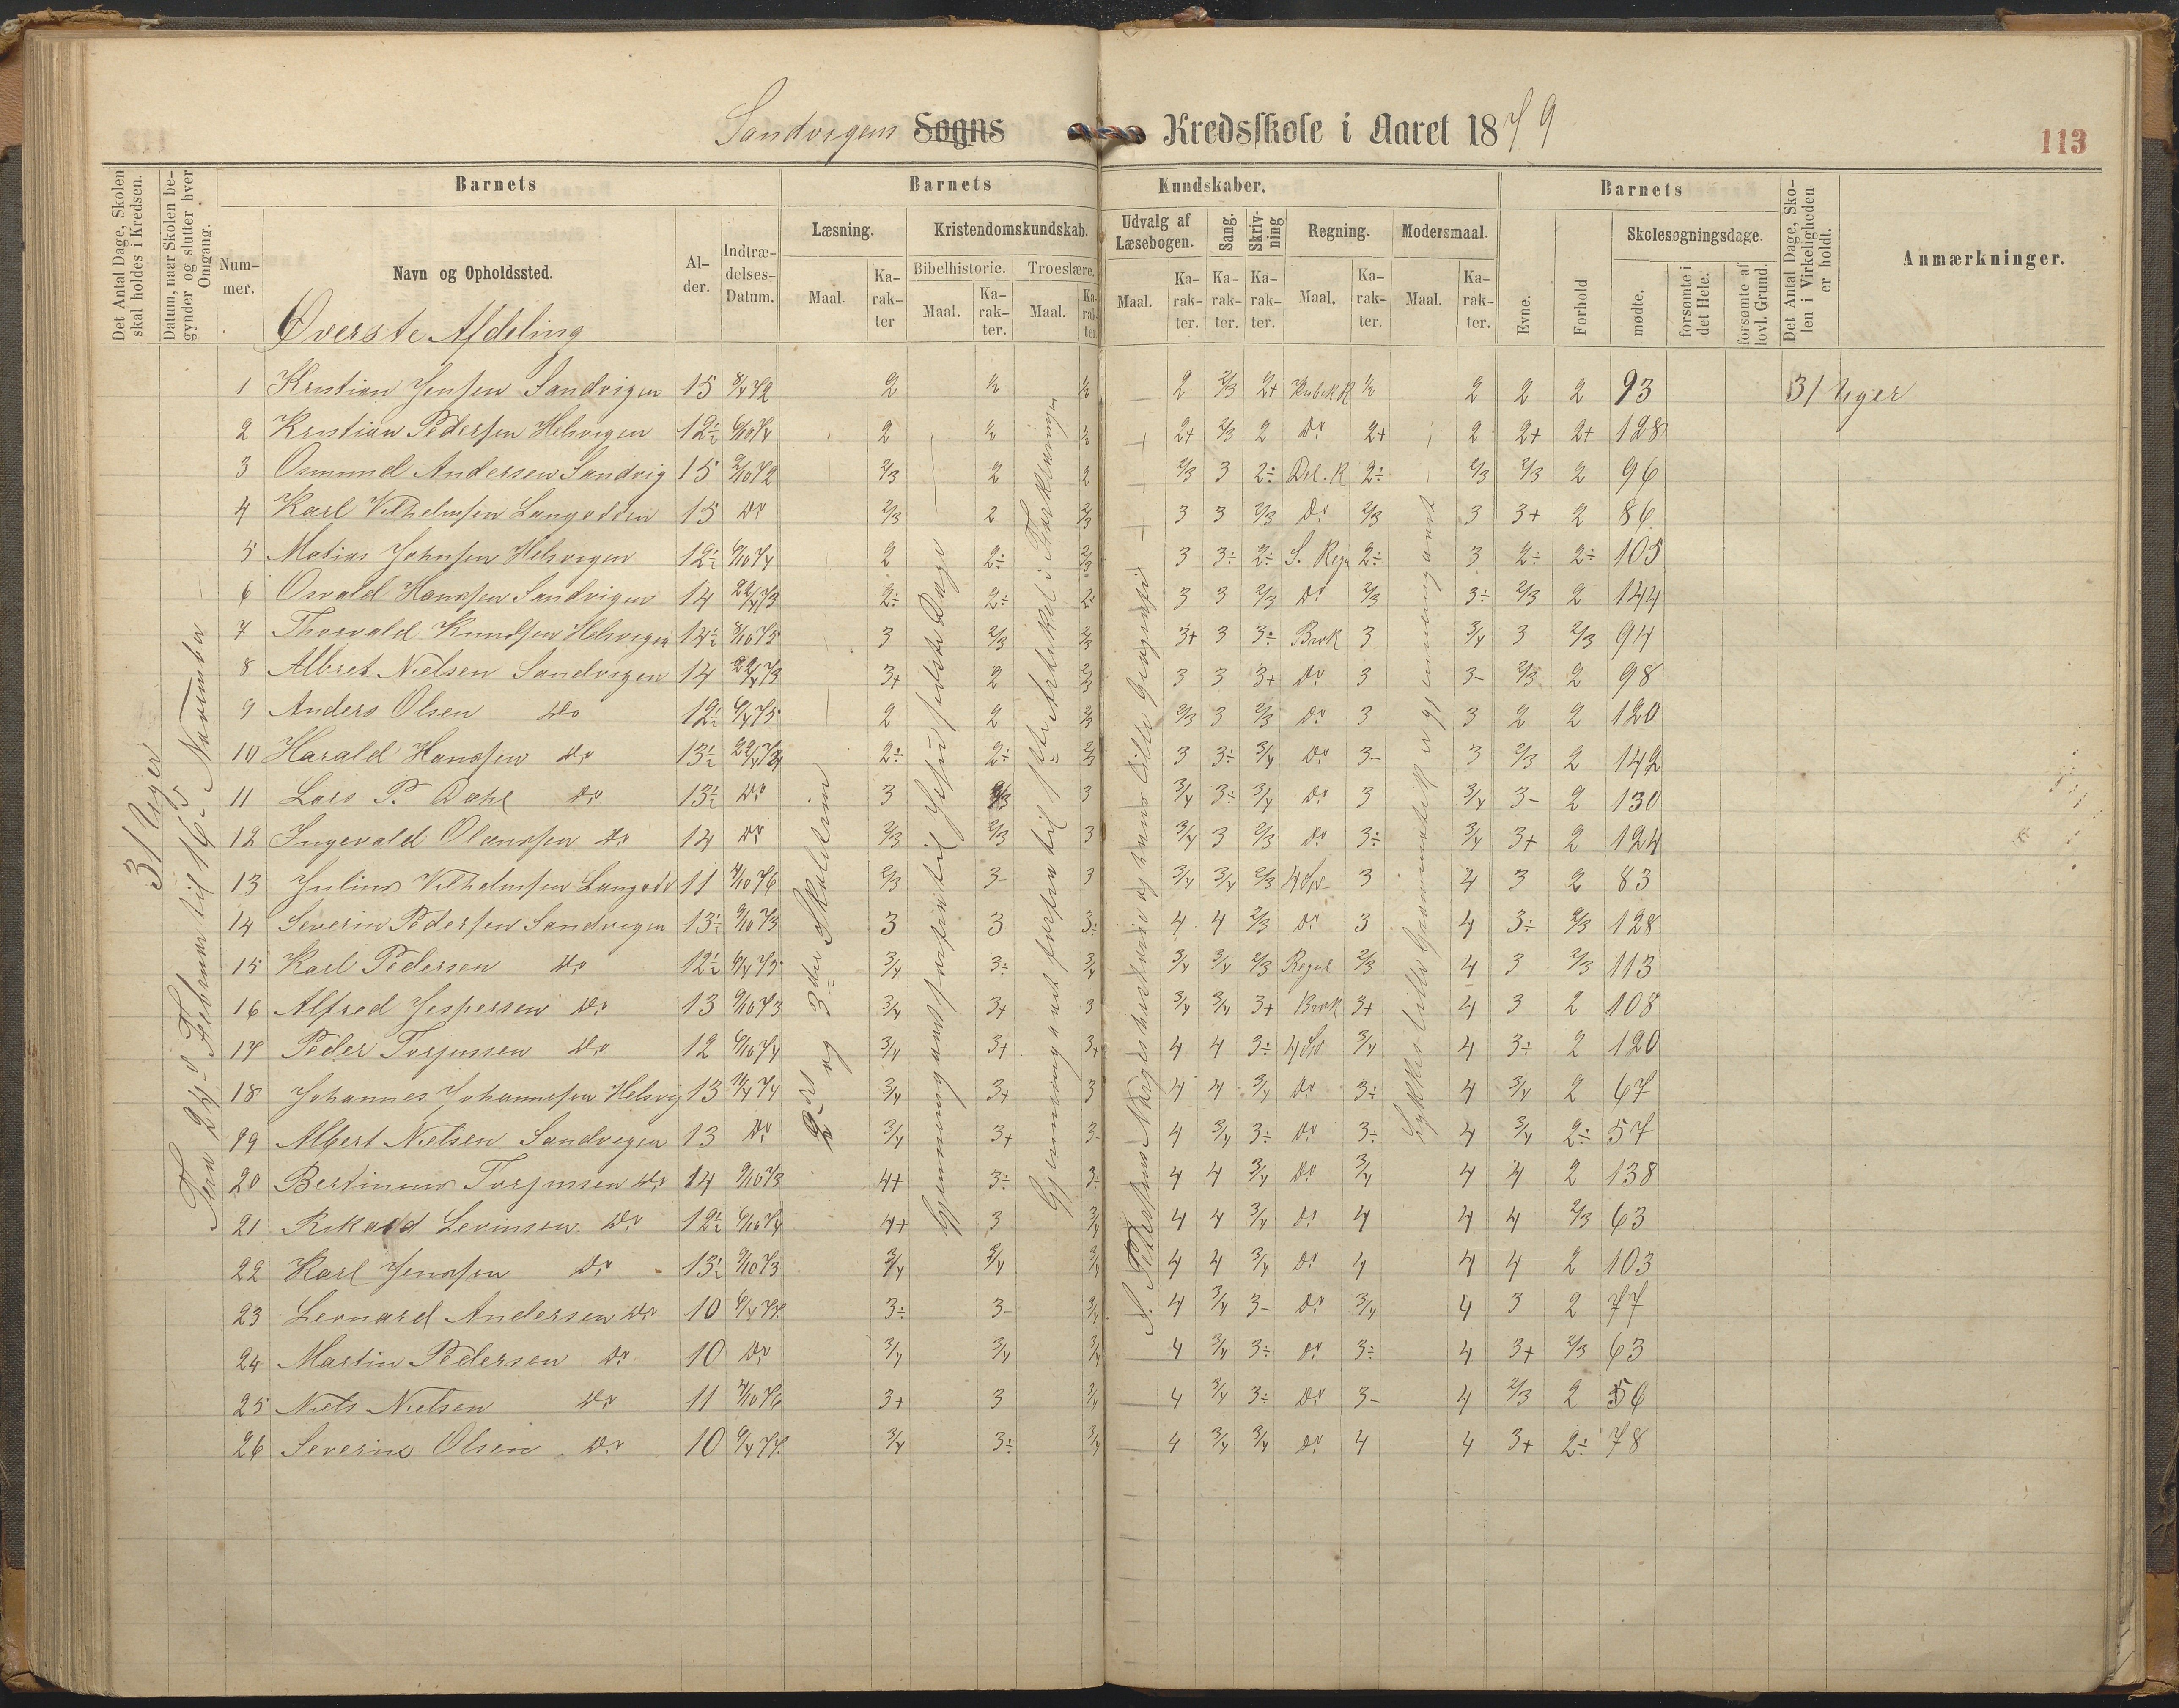 Sandvigens Sogns Kredsskole i Aaret 1879
113
Det Antal Dage, Skolen skal holdes i Kredsen.
Datum, naar Skolen begynder og slutter hver Omgang.
Barnets
Barnets Kundskaber.
Barnets
Det Antal Dage, Skolen i Virkeligheden er holdt.
Anmærkninger.
Nummer.
Navn og Opholdssted.
Alder.
Indtrædelses-Datum.
Læsning.
Kristendomskundskab.
Udvalg af Læsebogen.
Sang.
Skrivning
Regning.
Modersmaal.
Evne.
Forhold
Skolesøgningsdage.
Bibelhistorie.
Troeslære.
Maal.
Karakter
Maal.
Karakter.
Maal.
Karakter
Maal.
Karakter.
Karakter.
Karakter.
Maal.
Karakter.
Maal.
Karakter.
mødte.
forsømte i det Hele.
forsømte af lovl. Grund.
Øverste Afdeling
31 Uger
Fra 24de Februar til 16 November
2det og 3die Skoletrin
Gjennemgaaet
1 Kristian Jensen Sandvigen 15 8/4 72 2 1/2 1/2 2 2/3 2+ KubikR 1/2 2 2 2 93 31 Uger
2 Kristian Pedersen Helsvigen 12½ 6/10 74 2 1/2 1/2 2+ 2/3 2 Do 2+ 2 2+ 2+ 128
3 Osmund Andersen Sandvig 15 2/10 72 2/3 2 2 2/3 3 2÷ Del.R 2÷ 2/3 2/3 2 96
4 Karl Vilhelmsen Langodden 15 Do 2/3 2 2/3 3 3 2/3 Do 2/3 3 3+ 2 86
5 Matias Johnsen Helsvigen 12½ 6/10 74 2 2÷ 2/3 3 3÷ 2÷ S. Regu 2÷ 3 2÷ 2÷ 105
6 Osvald Hanssen Sandvigen 14 22/4 73 2÷ 2÷ 2÷ 3 3 2/3 Do 2/3 3÷ 2/3 2 144
7 Thorvald Knudsen Helsvigen 14½ 8/10 75 3 2/3 2/3 3+ 3 3÷ Brøk 3 3/4 3 2/3 94
8 Albret Nielsen Sandvigen 14 22/4 73 3+ 2 2/3 3 3 3+ Do 3 3- 2/3 2 98
9 Anders Olsen Do 12½ 6/4 75 2 2 2/3 2/3 3 2/3 Do 3 3 2 2 120
10 Harald Hanssen Do 13½ 22/4 73 2÷ 2÷ 2/3 3 3÷ 3/4 Do 3- 3 2/3 2 142
11 Lars P. Dahl Do 13½ Do 3 2/3 3 3/4 3÷ 3/4 Do 3 3/4 3- 2 130
12 Ingevald Olaussen Do 14 Do 2/3 2/3 3 3/4 3 2/3 Do 3÷ 3/4 3+ 2 124
13 Julius Vilhelmsen Langodd 11 4/10 76 2/3 3- 3 3/4 3/4 2/3 4 Sp 3 4 3 2 83
14 Severin Pedersen Sandvigen 13½ 9/10 73 3 3 3÷ 4 4 2/3 Do 3 4 3÷ 2/3 128
15 Karl Pedersen Do 12½ 6/4 75 3/4 3÷ 3/4 3/4 3/4 2/3 Regul 2/3 4 3 2/3 113
16 Alfred Jespersen Do 13 9/10 73 3/4 3+ 3 3/4 3/4 3+ Brøk 3+ 4 3 2 108
17 Peder Torjussen Do 12 6/10 74 3/4 3+ 3+ 4 4 3÷ 4 Sp 3/4 4 3÷ 2 120
18 Johannes Johannessen Helsvig 13 11/4 74 3/4 3+ 3 4 4 3/4 Do 3÷ 4 3/4 2 67
19 Albert Nielsen Sandvigen 13 Do 3/4 3+ 3- 4 3/4 3÷ Do 3÷ 4 3/4 2÷ 57
20 Bertinius Torjussen Do 14 9/10 73 4+ 3÷ 3÷ 4 4 3/4 Do 3/4 4 4 2 138
21 Rikard Levinsen Do 12½ 6/10 74 4+ 3 3/4 4 4 3/4 Do 4 4 4 2/3 63
22 Karl Jenssen Do 13½ 9/10 73 3/4 3/4 3/4 4 4 3/4 Do 4 4 4 2 103
23 Leonard Andersen Do 10 6/4 77 3÷ 3- 3/4 4 3/4 3- Do 3/4 4 3 2 77
24 Martin Pedersen Do 10 Do 3/4 3/4 3/4 4 3/4 3÷ Do 3÷ 4 3+ 2/3 63
25 Niels Nielsen Do 11 4/10 76 3+ 3 3/4 4 3/4 3÷ Do 3- 4 2/3 2 56
26 Severin Olsen Do 10 9/4 77 3/4 3÷ 3/4 4 3/4 3/4 Do 4 4 3+ 2÷ 78